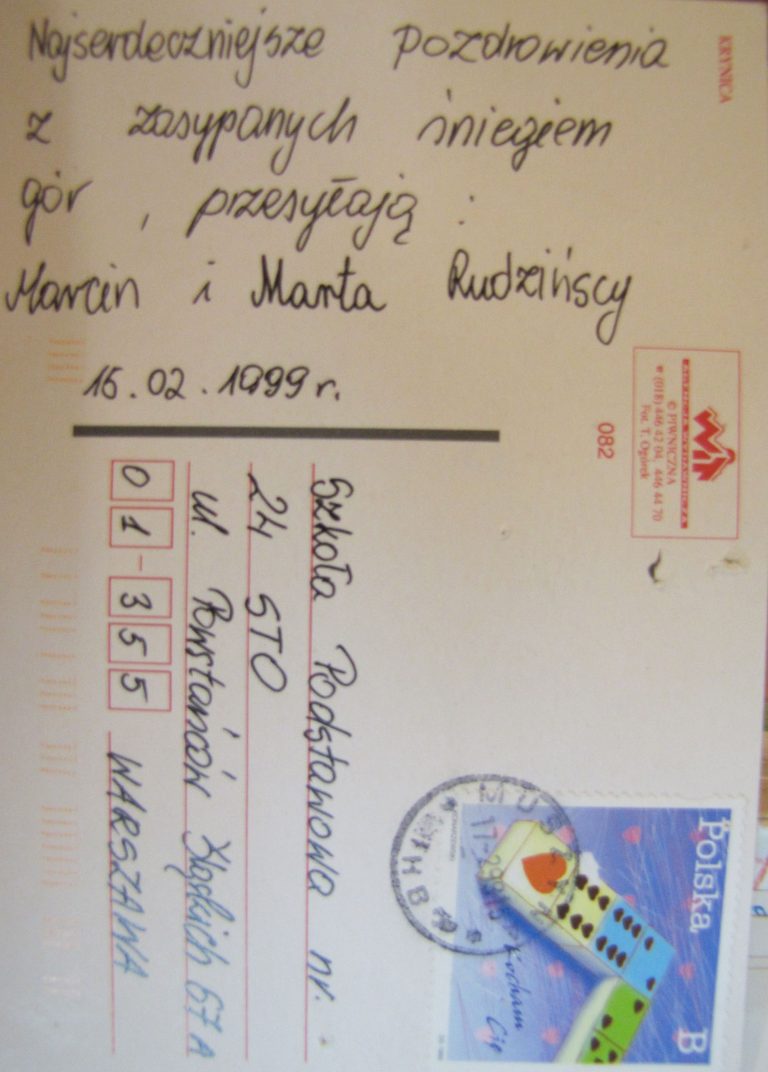 Najserdeczniejsze pozdrowienia
z zasypanych śniegiem
gór, przesyłają:
Marcin i Marta Rudzińscy
15.02.1999 r.
KRYNICA
© PIWNICZNA
(018) 446 42 04, 446 44 70
Fot. T. Ogórek
082
Szkoła Podstawowa nr.
24 STO
ul. Powstańców Śląskich 67A
01-355 WARSZAWA
Polska
B
Kocham
Cię
MUSZYNA
HB